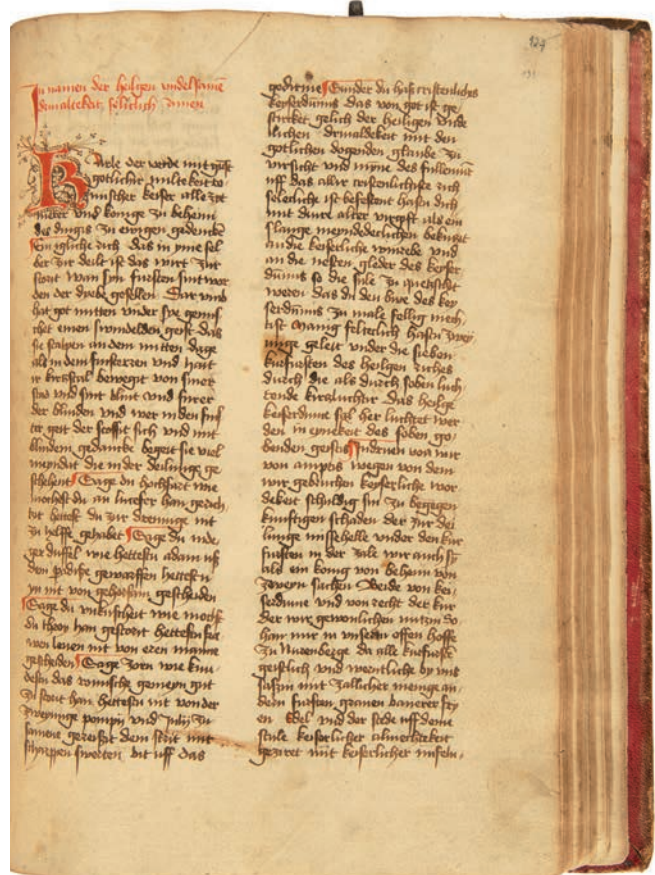 124
In namen der heiligen vndelsame
driualtekeit selicklich Amen
Karle der vierde mit gots
gotlicher miltekeit ro
mischer keiser alle zyt
merer vnd konige zu beheim
des dingis zu ewigen gedencken
Ein igliche rich das in yme sel
ber zur deilt ist das wirt zur
stort wan syn fursten sint wor
den der dyebe gesellen Dar vmb
hat got mitten vnder sye gemis
chet einen swindelden geist das
sie stalpen an dem mitten dage
als in dem finsterzen vnd hait
ir kirstal bewegit von siner
stad vnd sint blint vnd furer
der blinden vnd wer in den fins
ter geit der stosst sich vnd mit
blindem gedancke begeit sie viel
meyndat die in der deilunge ge
schehent Sage du hochfart wie
mochst du an lucifer han gerich
tet hettest du zur drennige nit
zu helffe gehabet Sage du nide
zer duffel wie hettestu adam uß
dem padise geworffen hettestu
yn nit von gehorsam gescheiden
Sage du vnkuscheit wie mochst
du troy han gestoret hettestu fra
wen lenen nit von eren manne
gescheiden Sage zorn wie kun
destu das romische gemeyn gut
zu stort han hettestu nit von der
zweyunge pompij vnd Julij zu
samene gereiszt dem strit mit
scharppen swerten bit uff das
gedirme Sunder du hass cristenliches
keyserdumes das von got ist ge
sterket gelich der heiligen vnde
lichen driualdekeit mit den
gotlichen dogenden glaube zu
virsicht vnd mynne des fullemut
uff das aller cristenlichste rich
selecliche ist befestent hastu dich
mit diner alter virgift als ein
slange meyndedeclichen bekuszet
an die keiserliche winrebe vnd
an die nesten gleder des keyser
dums so die sule zu quetscht
weren das du den buwe des key
serdums zu male fellig mech
tist manig felteclich hastu zwey
unge geleit vnder die sieben
kurfursten des heiligen riches
durch die als durch soben luch
tende kirtzluchter das heilge
keiserdum sal her luchtet wer
den in eynekeit des soben go
benden geistes Indruen wa wir
von amptes wegen von dem
wir gebruchen keyserliche wor
dekeit schuldig sin zu begegen
kunftigen schaden der zur dei
lunge missehelle vnder den kur
fursten in der zale wir auch sy
als ein konig von beheim von
zweyn sachen Beide von kei
serdume vnd von recht der kur
der wir gewonlichen nutzin do
han wir in vnserm offen hoffe
zu Nurenberge da alle kurfursten
geistlich vnd werntliche by vns
saszin mit zallicher meinge an
dern fursten grauen banerer fry
en Edel vnd der stede uff deme
stule keiserlicher almechtekeit
geziret mit keiserlicher infeln